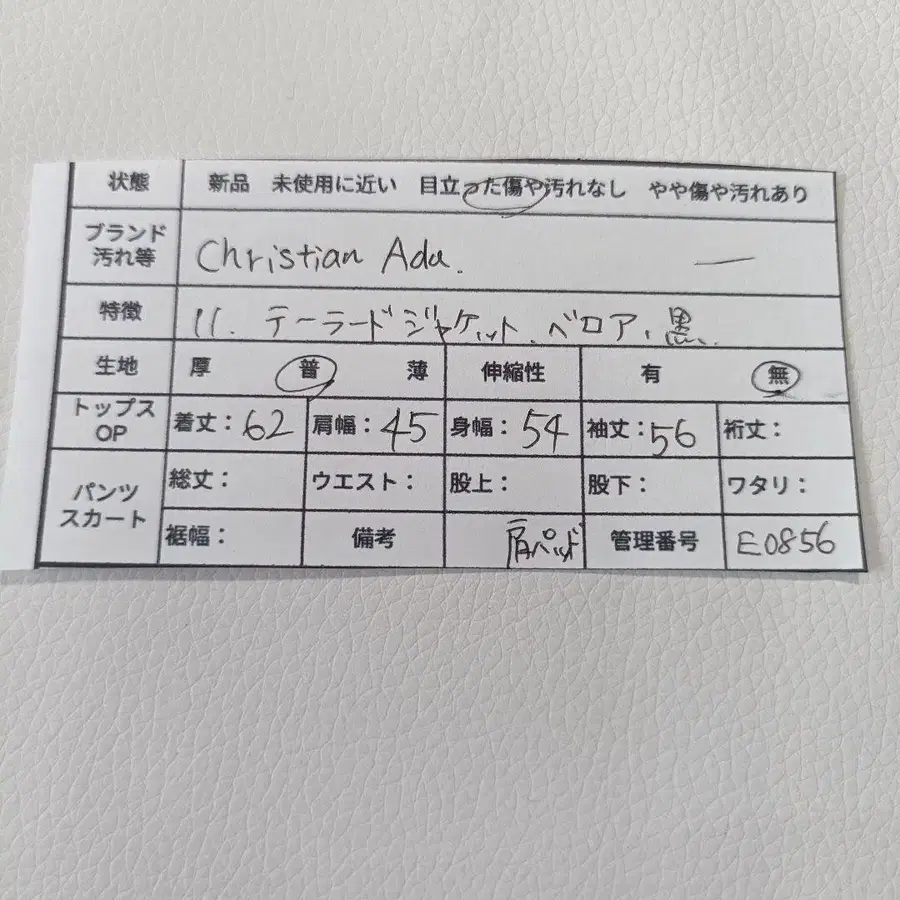 状態 新品 未使用に近い 目立った傷や汚れなし やや傷や汚れあり
ブランド
汚れ等 Christian Adu. —
特徴 11. テーラードジャケット、ベロア、黒、
生地 厚 普 薄 伸縮性 有 無
トップス
OP 着丈：62 肩幅：45 身幅：54 袖丈：56 裄丈：
パンツ
スカート 総丈： ウエスト： 股上： 股下： ワタリ：
裾幅： 備考 肩パッド 管理番号 E0856